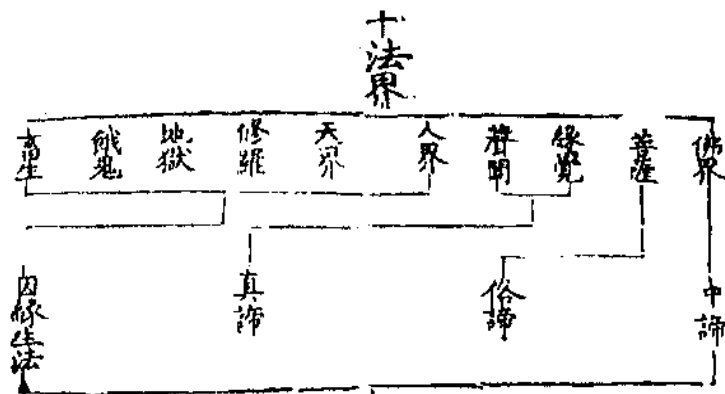 十法界
佛界
菩薩
緣覺
聲聞
人界
天界
修羅
地獄
餓鬼
畜生
中諦
俗諦
真諦
因緣生法